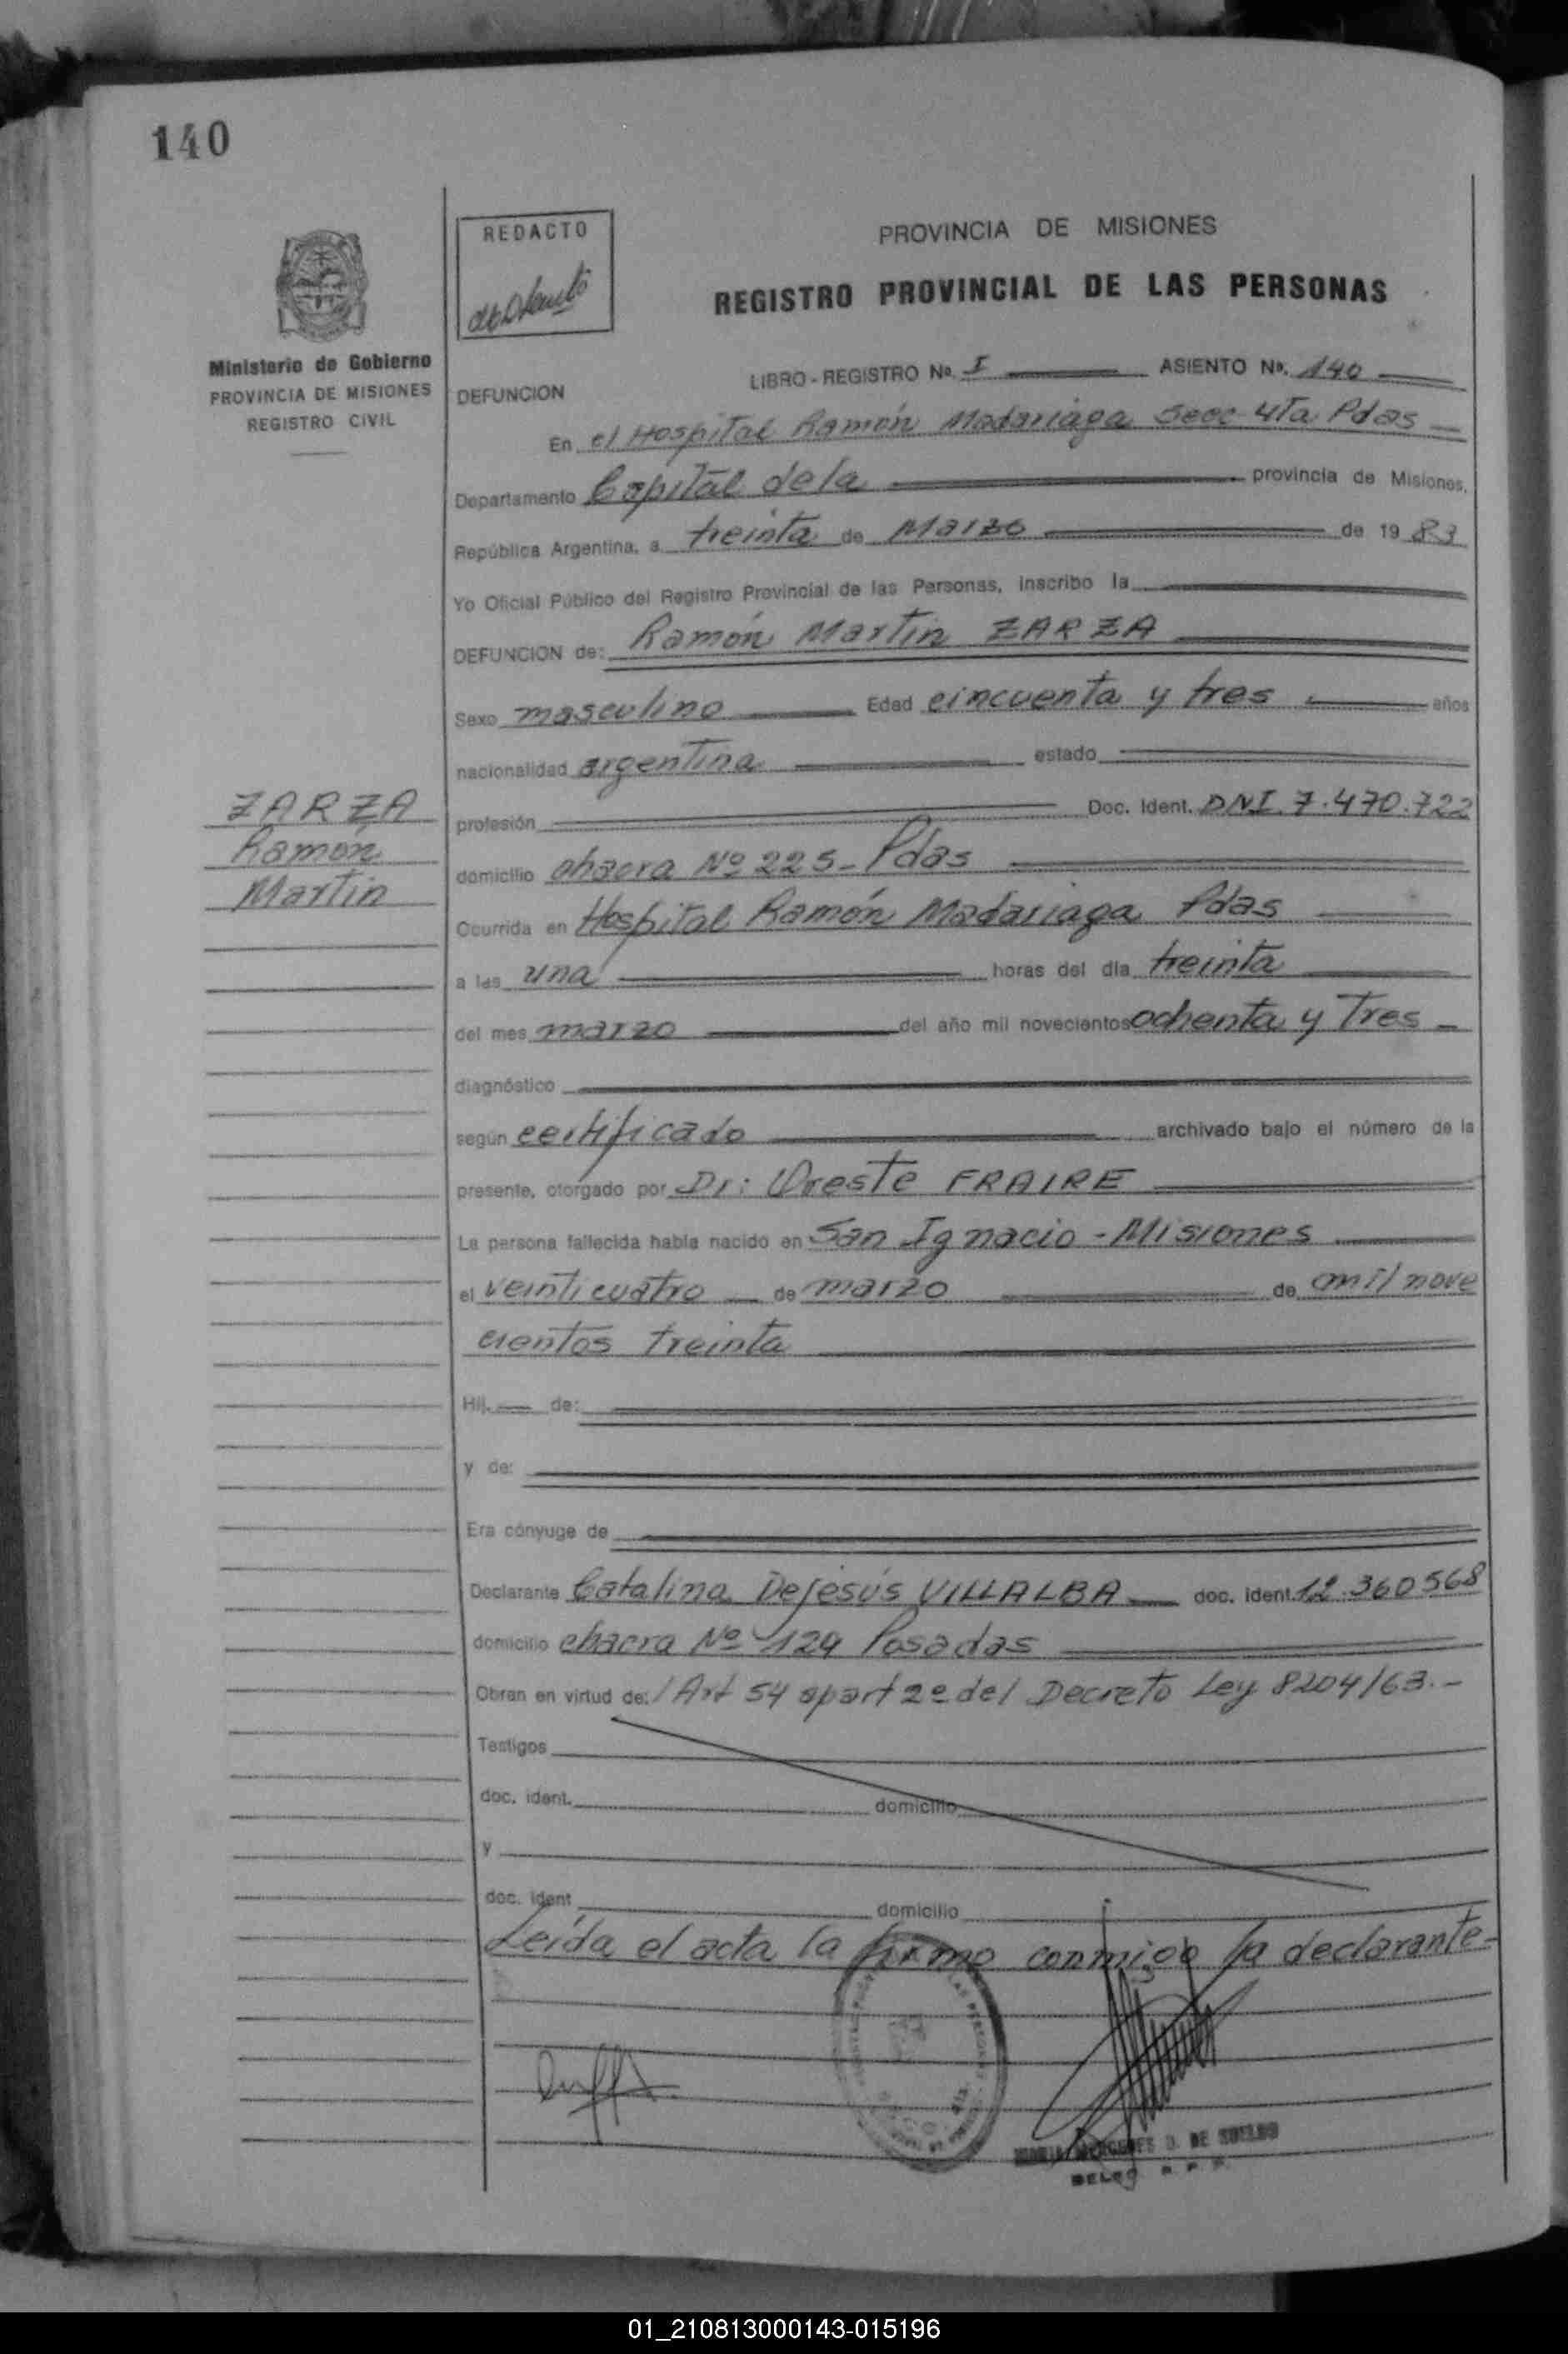 140
REDACTO
PROVINCIA DE MISIONES
REGISTRO PROVINCIAL DE LAS PERSONAS
Ministerio de Gobierno
PROVINCIA DE MISIONES
REGISTRO CIVIL
DEFUNCION
LIBRO - REGISTRO No. I ASIENTO No. 140
En el Hospital Ramón Madariaga Secc 4Ta Pdas
Departamento Capital de la provincia de Misiones,
República Argentina, a treinta de Marzo de 1983
Yo Oficial Público del Registro Provincial de las Personas, inscribo la
DEFUNCION de: Ramón Martin ZARZA
Sexo masculino Edad cincuenta y tres años
nacionalidad argentina estado
ZARZA
Ramón
Martin
profesión Doc. Ident. DNI. 7.470.722
domicilio chacra Nº 225- Pdas
Ocurrida en Hospital Ramón Madariaga Pdas
a las una horas del día treinta
del mes marzo del año mil novecientos ochenta y Tres
diagnóstico
según certificado archivado bajo el número de la
presente, otorgado por Dr: Oreste FRAIRE
La persona fallecida había nacido en San Ignacio - Misiones
el veinticuatro de marzo de mil nove
cientos treinta
Hij. de:
y de:
Era cónyuge de
Declarante Catalina Dejesús VILLALBA doc. ident. 12.360568
domicilio chacra Nº 129 Posadas
Obran en virtud de: Art 54 apart 2º del Decreto Ley 8204/63.-
Testigos
doc. ident. domicilio
y
doc. ident domicilio
Leída el acta la firma conmigo la declarante-
MARIA MERCEDES D. DE
01_210813000143-015196